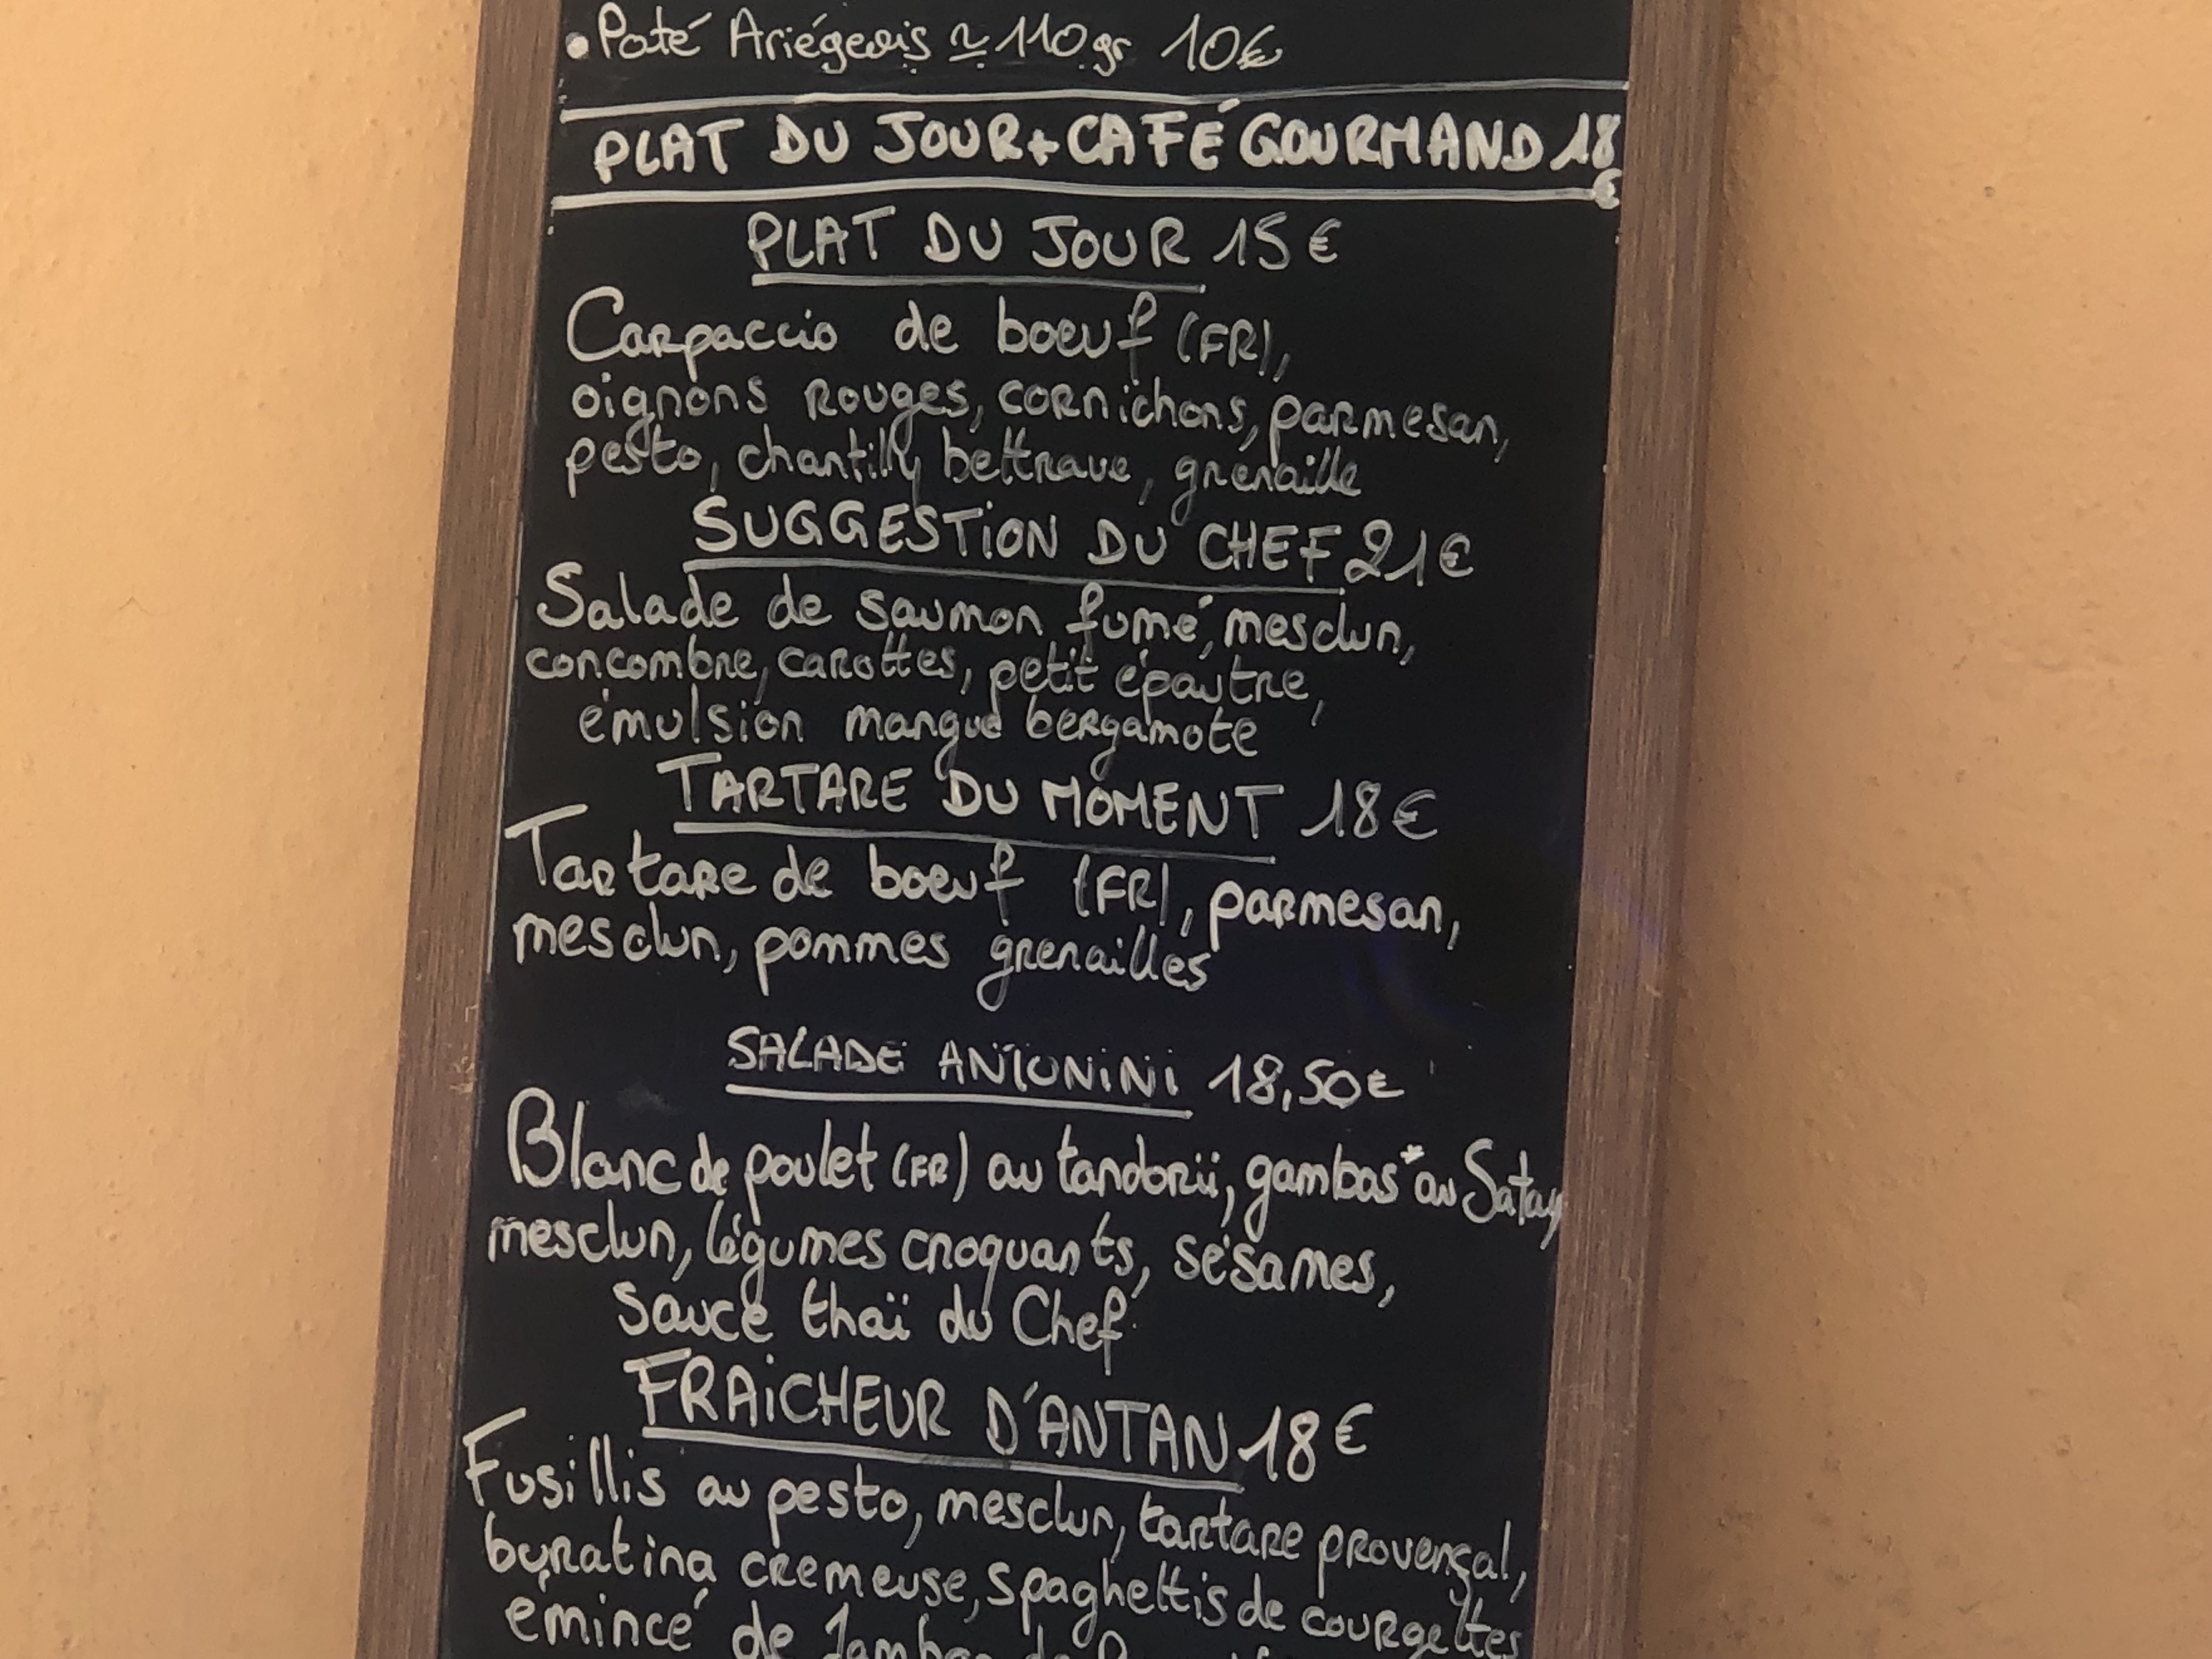 • Paté Ariégeois ≃ 110 gr 10€
PLAT DU JOUR + CAFÉ GOURMAND 18
€
PLAT DU JOUR 15€
Carpaccio de boeuf (FR),
oignons rouges, cornichons, parmesan,
pesto, chantilly bettrave, grenaille
SUGGESTION DU CHEF 21€
Salade de saumon fumé, mesclun,
concombre, carottes, petit épautre,
émulsion mangue bergamote
TARTARE DU MOMENT 18€
Tartare de boeuf (FR), parmesan,
mesclun, pommes grenailles
SALADE ANTONINI 18,50€
Blanc de poulet (FR) au tandorii, gambas* au Satay
mesclun, légumes croquants, sésames,
sauce thaï du Chef
FRAICHEUR D'ANTAN 18€
Fusillis au pesto, mesclun, tartare provençal,
buratina cremeuse, spaghettis de courgettes
émincé de Jambon de